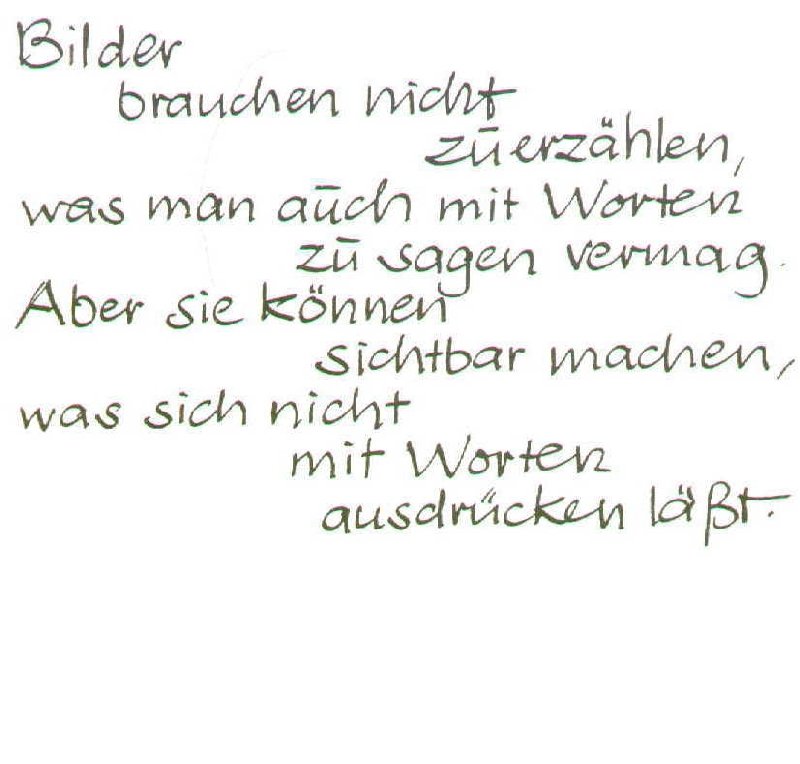 Bilder
brauchen nicht
zu erzählen,
was man auch mit Worten
zu sagen vermag.
Aber sie können
sichtbar machen,
was sich nicht
mit Worten
ausdrücken läßt.